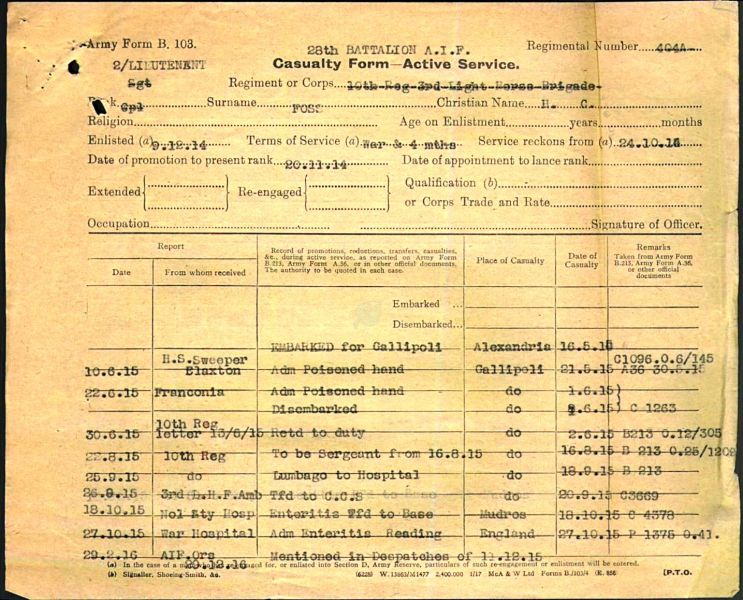 Army Form B. 103.
28th BATTALION A.I.F.
Regimental Number 404A
2/LIEUTENANT
Casualty Form—Active Service.
Sgt
Regiment or Corps 10th Reg 3rd Light Horse Brigade
Rank Cpl Surname FOSS Christian Name H. C.
Religion Age on Enlistment years months
Enlisted (a) 9.12.14 Terms of Service (a) War & 4 mths Service reckons from (a) 24.10.14
Date of promotion to present rank 20.11.14 Date of appointment to lance rank
Extended Re-engaged Qualification (b)
or Corps Trade and Rate
Occupation Signature of Officer.
Report
Date From whom received
Record of promotions, reductions, transfers, casualties, &c., during active service, as reported on Army Form B.213, Army Form A.36, or in other official documents. The authority to be quoted in each case.
Place of Casualty
Date of Casualty
Remarks
Taken from Army Form B.213, Army Form A.36, or other official documents
Embarked
Disembarked
EMBARKED for Gallipoli Alexandria 16.5.15
H.S.Sweeper C1096.0.6/145
10.6.15 Adm Poisoned hand Gallipoli 21.5.15 A36 30.5.15
22.6.15 Franconia Adm Poisoned hand do 1.6.15
Disembarked do 6.15 C 1263
10th Reg
30.6.15 letter 13/6/15 Retd to duty do 2.6.15 B213 0.12/305
22.8.15 10th Reg To be Sergeant from 16.8.15 do 16.8.15 B 213 0.25/
25.9.15 do Lumbago to Hospital do 18.9.15 B 213
26.9.15 3rd L.H.F.Amb Tfd to C.C.S do 20.9.15 C3669
18.10.15 Hosp Enteritis Tfd to Base Mudros 18.10.15 C 4378
27.10.15 War Hospital Adm Enteritis Reading England 27.10.15 P 1375 0.41.
29.2.16 AIF.Ors Mentioned in Despatches of 11.12.15
(a) In the case of a man who has re-engaged for, or enlisted into Section D, Army Reserve, particulars of such re-engagement or enlistment will be entered.
(b) Signaller, Shoeing-Smith, &c. (6228) W.13863/M1477 2,400,000 1/17 McA & W Ltd Forms B./103/4 (E. 856) [P.T.O.